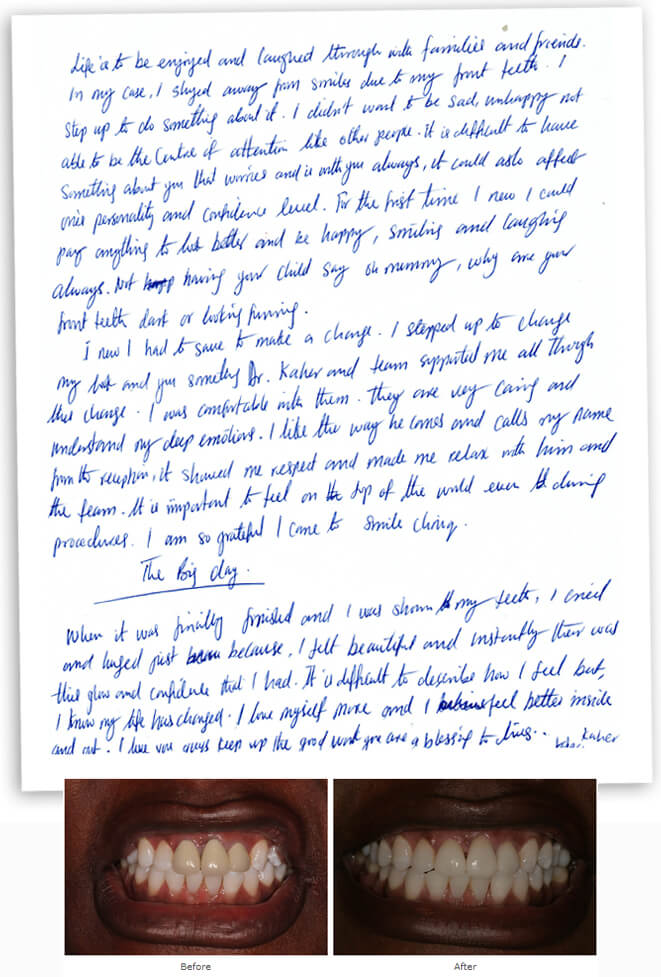 Life is to be enjoyed and laughed through with families and friends.
In my case, I shyed away from smiles due to my front teeth. I
step up to do something about it. I didn't want to be sad, unhappy not
able to be the centre of attention like other people. it is difficult to have
something about you that worries and is with you always, it could also affect
one's personality and confidence level. For the first time I new I could
pay anything to look better and be happy, smiling and laughing
always. Not having your child say oh mummy, why are your
front teeth dark or looking funning.
I new I had to save to make a change. I stepped up to change
my look and you someting Dr. Kaher and team supported me all though
this change. I was comfortable with them. they are very caring and
understand my deep emotions. I like the way he comes and calls my name
from the reception, it showed me respect and made me relax with him and
the team. It is important to feel on the top of the world even during
procedures. I am so grateful I came to smile clinig.
The Big day.
When it was finally finished and I was shown my teeth, I cried
and huged just because, I felt beautiful and instantly their was
this glow and confidence that I had. It is difficult to describe how I feel but,
I know my life has changed. I love myself more and I feel better inside
and out. I love you guys keep up the good work you are a blessing to lives..
Kaher
Before
After